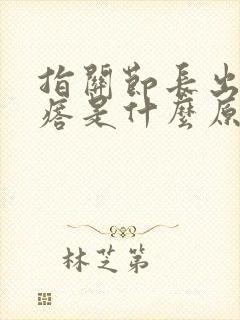 指關節長出
痞是什麼原
林芝第